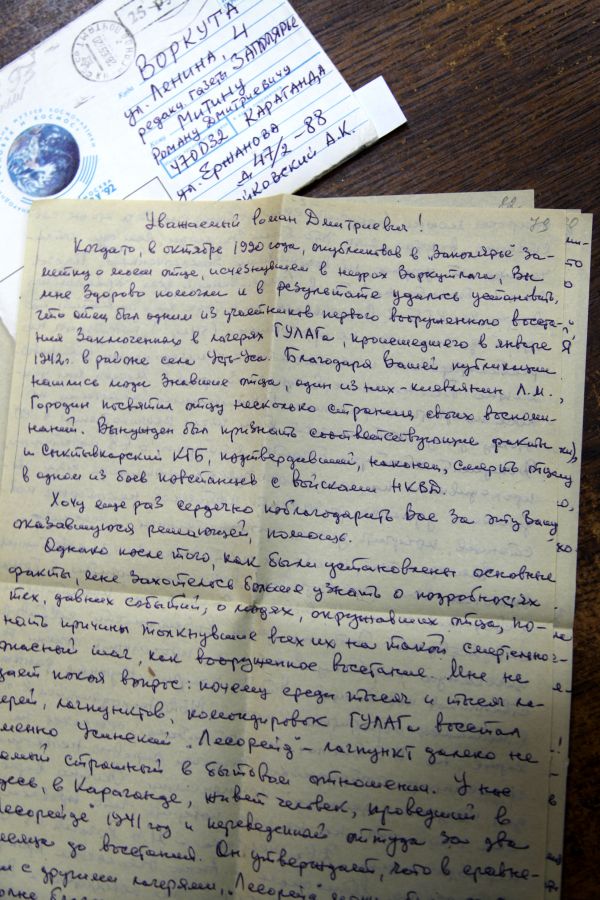 ВОРКУТА
ул. Ленина, 4
редакц. газеты ЗАПОЛЯРЬЕ
Митину
Роману Дмитриевичу
470032 КАРАГАНДА
ул. Ержанова
д. 47/2-88
А.К.
79
Уважаемый Роман Дмитриевич!
Когда-то, в октябре 1990 года, опубликовав в „Заполярье" за-
метку о моем отце, исчезнувшем в недрах Воркутлага, Вы
мне здорово помогли и в результате удалось установить,
что отец был одним из участников первого вооруженного восста-
ния заключенного в лагерях ГУЛАГа, происшедшего в январе
1942г. в районе села Усть-Уса. Благодаря Вашей публикации
нашлись люди знавшие отца, один из них - киевлянин Л.М.
Городин посвятил отцу несколько страниц своих воспоми-
наний. Вынужден был признать соответствующие факты
и Сыктывкарский КГБ, подтвердивший, наконец, смерть отца
в одном из боев повстанцев с войсками НКВД.
Хочу еще раз сердечно поблагодарить Вас за эту Вашу
оказавшуюся решающей, помощь.
Однако после того, как были установлены основные
факты, мне захотелось больше узнать о подробностях
тех, давних событий, о людях, окружавших отца, по-
нять причины толкнувшие всех их на такой смертельно-
опасный шаг, как вооруженное восстание. Мне не
дает покоя вопрос: почему среди тысяч и тысяч ла-
герей, лагпунктов, командировок ГУЛАГа восстал
именно Усинский „Лесорейд" - лагпункт далеко не
самый страшный в бытовом отношении. У нас
здесь, в Караганде, живет человек, проведший в
„Лесорейде" 1941 год и переведенный оттуда за два
месяца до восстания. Он утверждает, что в сравне-
нии с другими лагерями, „Лесорейд"